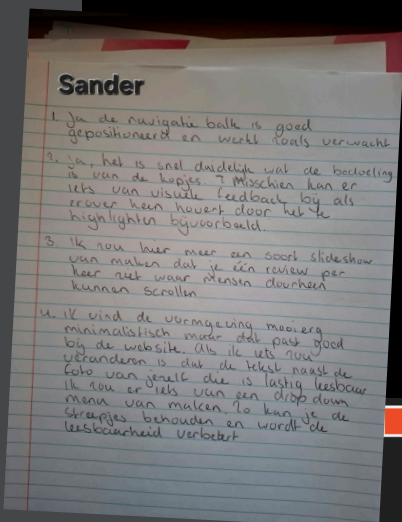 Sander
1. Ja de navigatie balk is goed
gepositioneerd en werkt zoals verwacht
2. ja, het is snel duidelijk wat de bedoeling
is van de kopjes. ? Misschien kan er
iets van visuele feedback bij als
erover heen hovert door het te
highlighten bijvoorbeeld.
3. Ik zou hier meer een soort slideshow
van maken dat je één review per
keer ziet waar mensen doorheen
kunnen scrollen
4. Ik vind de vormgeving mooi erg
minimalistisch maar dat past goed
bij de website. Als ik iets zou
veranderen is dat de tekst naast de
foto van jezelf die is lastig leesbaar
Ik zou er iets van een drop down
menu van maken. Zo kan je de
streepjes behouden en wordt de
leesbaarheid verbetert